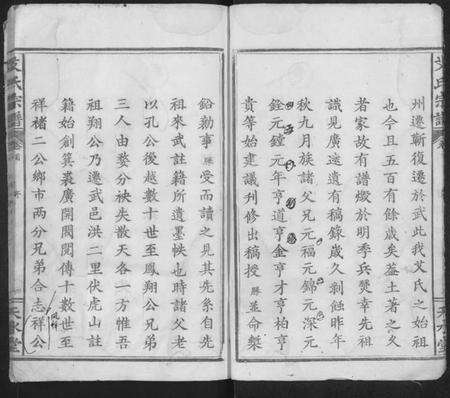 州遷蘄復遷於武此我艾氏之始祖
也今且五百有餘歲矣蓋土著之久
者家故有譜燬於明季兵燹幸先祖
識見廣遠遺有稿錄歲久剝蝕昨年
秋九月族諸父兄元福元錦元深元
銓元鍾元年亨道亨金亨才亨柏亨
貴等始建議刋修出稿授 並命槧
鉛勷事 受而讀之見其先系自先
祖來武註籍所遺墨帙也時諸父老
以孔公後越數十世至鳳翔公兄弟
三人由婺分袂失散天各一方惟吾
祖翔公乃遷武邑洪二里伏虎山註
籍始創箕裘廣開閥閱傳十數世至
祥禇二公鄉市兩分兄弟合志祥公
艾氏宗譜
卷
天水堂